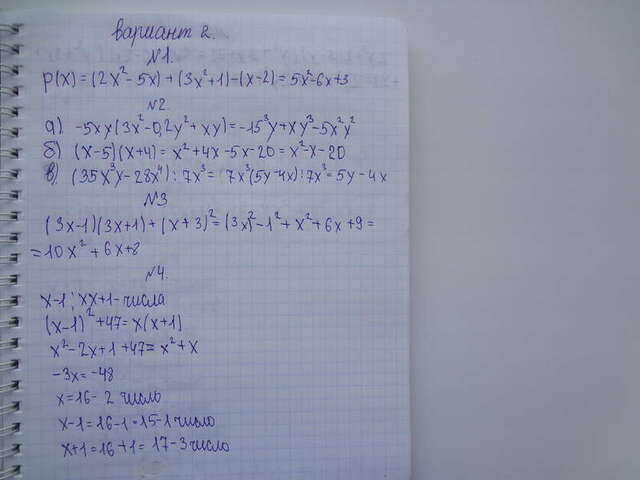 вариант 2.
№1.
p(x) = (2x² - 5x) + (3x² + 1) - (x - 2) = 5x² - 6x + 3
№2.
а) -5xy(3x² - 0,2y² + xy) = -15³y + xy³ - 5x²y²
б) (x - 5)(x + 4) = x² + 4x - 5x - 20 = x² - x - 20
в) (35x³y - 28x⁴) : 7x³ = 7x³(5y - 4x) : 7x³ = 5y - 4x
№3
(3x - 1)(3x + 1) + (x + 3)² = (3x)² - 1² + x² + 6x + 9 =
= 10x² + 6x + 8
№4.
x - 1; x x + 1 - числа
(x - 1)² + 47 = x(x + 1)
x² - 2x + 1 + 47 = x² + x
-3x = -48
x = 16 - 2 число
x - 1 = 16 - 1 = 15 - 1 число
x + 1 = 16 + 1 = 17 - 3 число